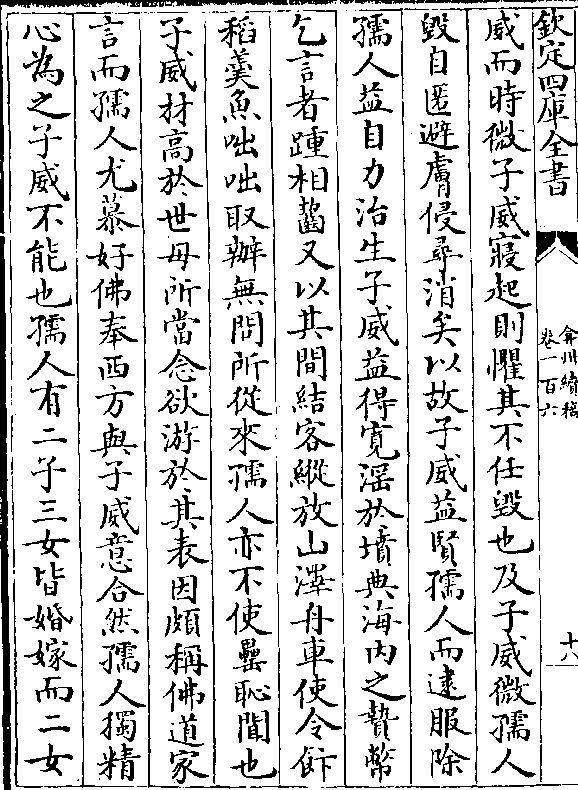 欽定四庫全書
弇州續稿
卷一百六
十八
威而時微子威寢起則懼其不任毀也及子威微孺人
毀自匿避膚侵尋消矣以故子威益賢孺人而逮服除
孺人益自力治生子威益得寛滛於墳典海内之贄幣
乞言者踵相齧又以其間結客縱放山澤舟車使令餰
稻羮魚咄咄取辦無問所從來孺人亦不使罍恥聞也
子威材高於世毋所當念欲游於其表因頗稱佛道家
言而孺人尤慕好佛奉西方與子威意合然孺人獨精
心為之子威不能也孺人有二子三女皆婚嫁而二女